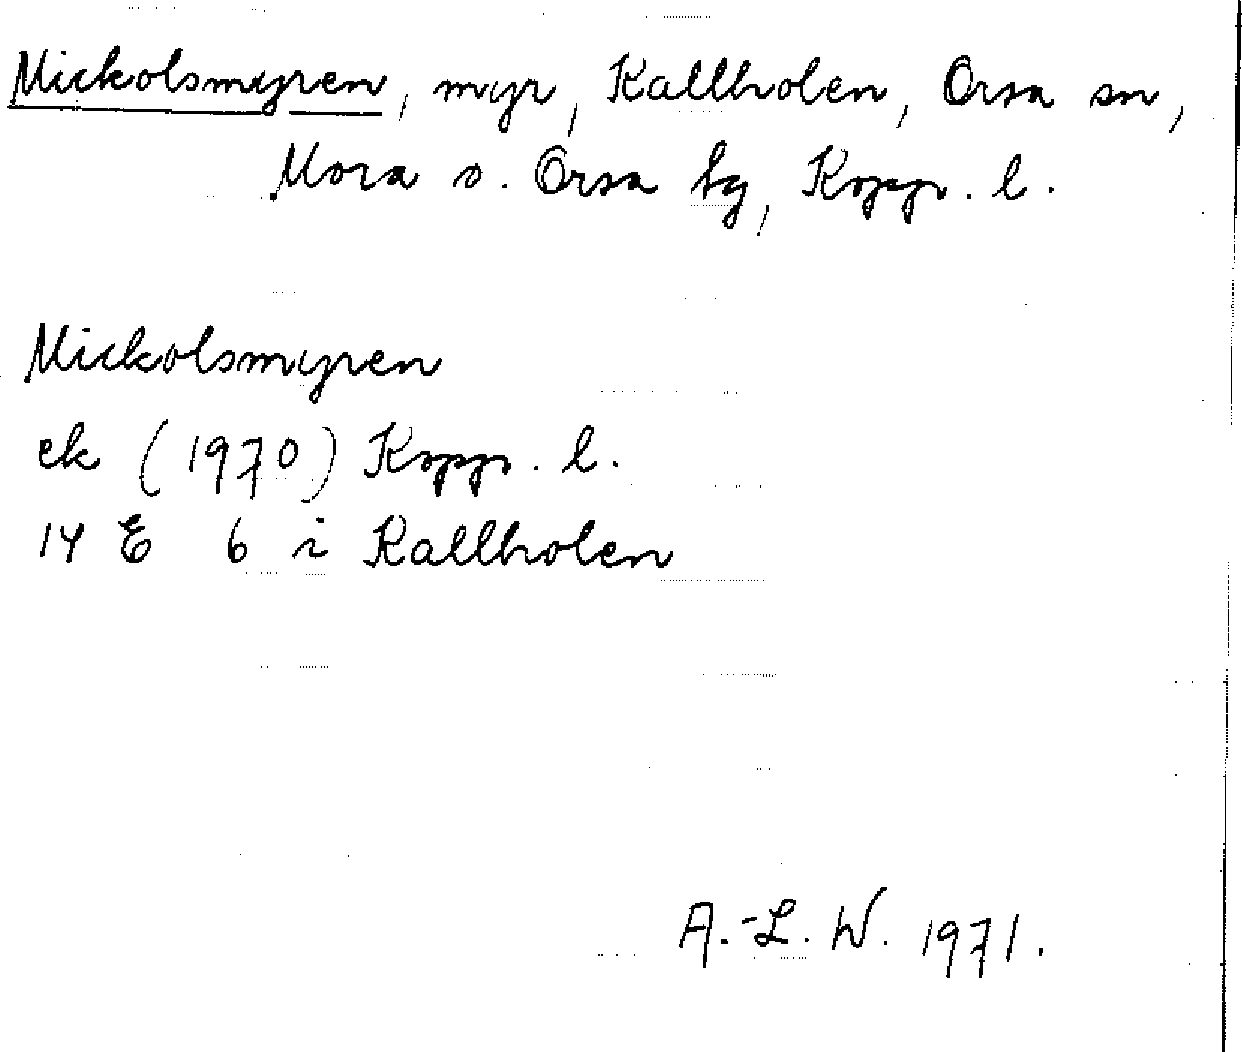 Mickolsmyren, myr, Kallholen, Orsa sn,
Mora o. Orsa tg, Kopp. l.
Mickolsmyren
ek (1970) Kopp. l.
14 E 6 i Kallholen
A.-L. W. 1971.